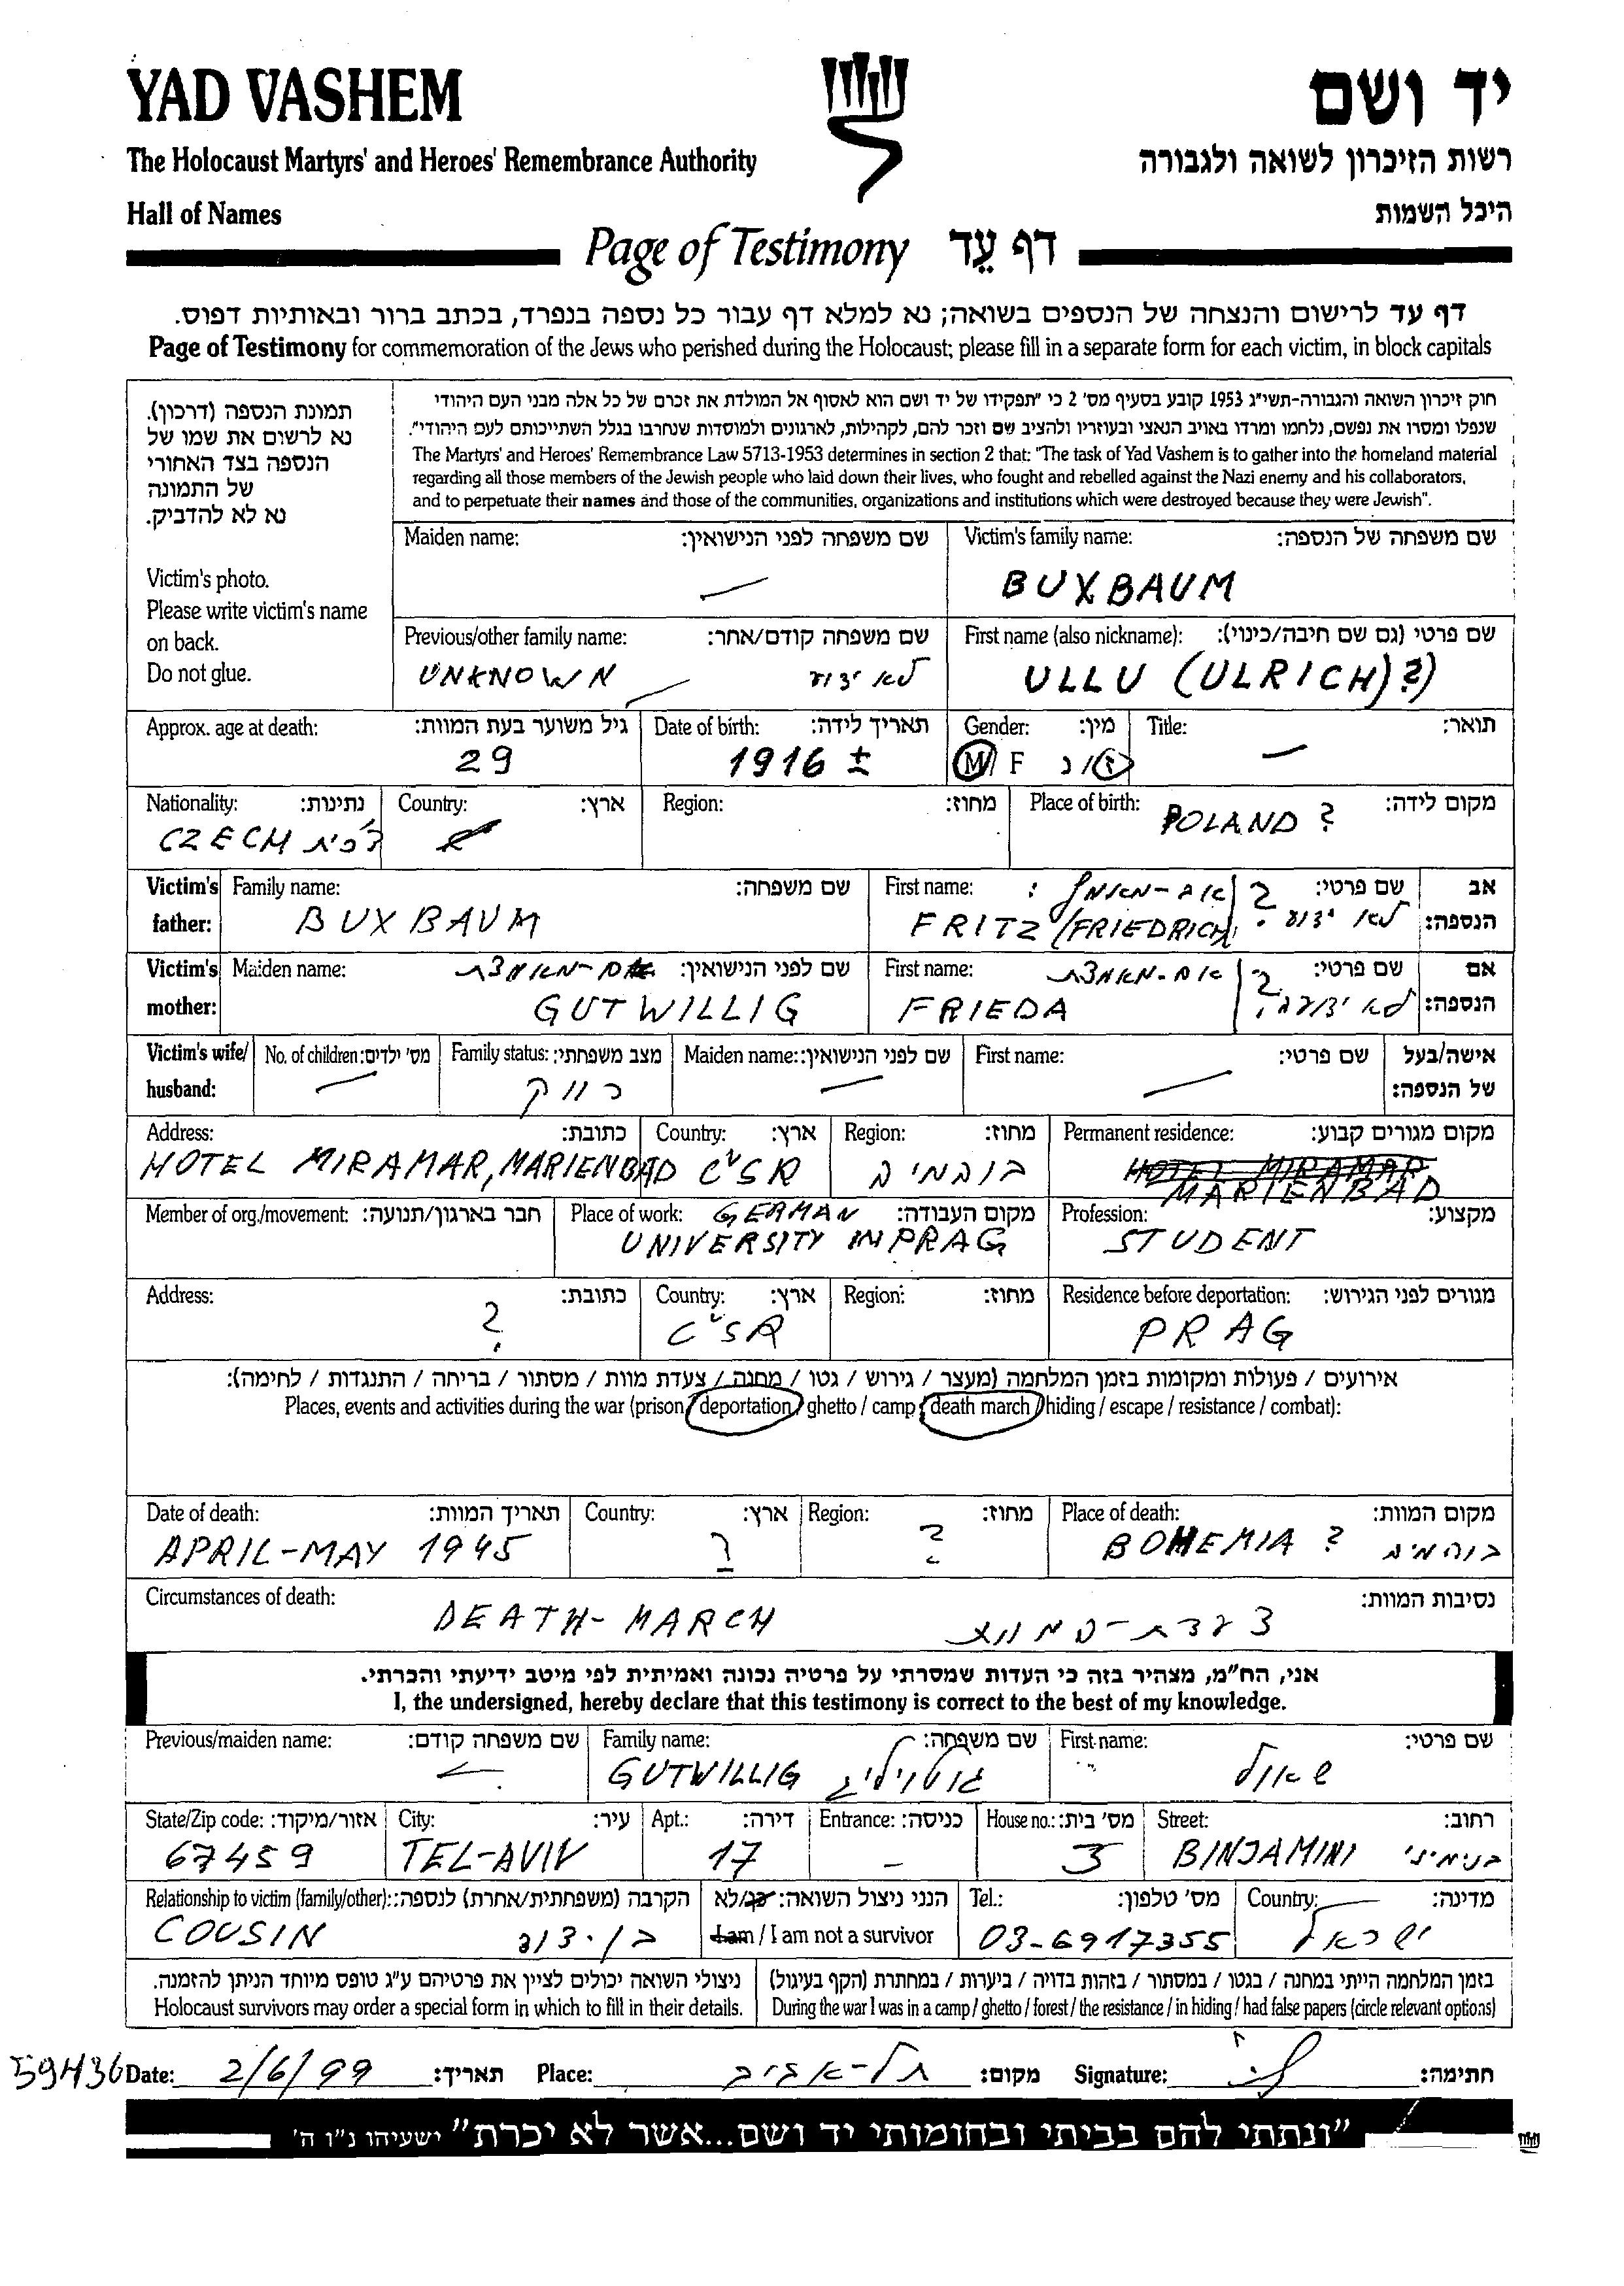 YAD VASHEM
יד ושם
The Holocaust Martyrs' and Heroes' Remembrance Authority
רשות הזיכרון לשואה ולגבורה
Hall of Names
היכל השמות
Page of Testimony דף עֵד
דף עד לרישום והנצחה של הנספים בשואה; נא למלא דף עבור כל נספה בנפרד, בכתב ברור ובאותיות דפוס.
Page of Testimony for commemoration of the Jews who perished during the Holocaust; please fill in a separate form for each victim, in block capitals
תמונת הנספה (דרכון).
נא לרשום את שמו של
הנספה בצד האחורי
של התמונה
נא לא להדביק.
Victim's photo.
Please write victim's name
on back.
Do not glue.
חוק זיכרון השואה והגבורה-תשי"ג 1953 קובע בסעיף מס' 2 כי "תפקידו של יד ושם הוא לאסוף אל המולדת את זכרם של כל אלה מבני העם היהודי
שנפלו ומסרו את נפשם, נלחמו ומרדו באויב הנאצי ובעוזריו ולהציב שם וזכר להם, לקהילות, לארגונים ולמוסדות שנחרבו בגלל השתייכותם לעם היהודי".
The Martyrs' and Heroes' Remembrance Law 5713-1953 determines in section 2 that: "The task of Yad Vashem is to gather into the homeland material
regarding all those members of the Jewish people who laid down their lives, who fought and rebelled against the Nazi enemy and his collaborators,
and to perpetuate their names and those of the communities, organizations and institutions which were destroyed because they were Jewish".
Maiden name: שם משפחה לפני הנישואין:
—
Victim's family name: שם משפחה של הנספה:
BUXBAUM
Previous/other family name: שם משפחה קודם/אחר:
UNKNOWN לא ידוע
First name (also nickname): שם פרטי (גם שם חיבה/כינוי):
ULLU (ULRICH)?)
Approx. age at death: גיל משוער בעת המוות:
29
Date of birth: תאריך לידה:
1916 ±
Gender: מין:
M / F ז/נ
Title: תואר:
—
Nationality: נתינות:
CZECH צ'כית
Country: ארץ:
Region: מחוז:
Place of birth: מקום לידה:
POLAND ?
Victim's father: אב הנספה:
Family name: שם משפחה:
BUXBAUM
First name: שם פרטי:
FRITZ/FRIEDRICH לא ידוע ?
Victim's mother: אם הנספה:
Maiden name: שם לפני הנישואין:
GUTWILLIG
First name: שם פרטי:
FRIEDA ?
Victim's wife/ husband: אישה/בעל של הנספה:
No. of children: מס' ילדים:
—
Family status: מצב משפחתי:
רווק
Maiden name: שם לפני הנישואין:
—
First name: שם פרטי:
—
Address: כתובת:
HOTEL MIRAMAR, MARIENBAD
Country: ארץ:
ČSR
Region: מחוז:
בוהמיה
Permanent residence: מקום מגורים קבוע:
HOTEL MIRAMAR
MARIENBAD
Member of org./movement: חבר בארגון/תנועה:
Place of work: מקום העבודה:
GERMAN
UNIVERSITY IN PRAG
Profession: מקצוע:
STUDENT
Address: כתובת:
?
Country: ארץ:
ČSR
Region: מחוז:
Residence before deportation: מגורים לפני הגירוש:
PRAG
אירועים / פעולות ומקומות בזמן המלחמה (מעצר / גירוש / גטו / מחנה / צעדת מוות / מסתור / בריחה / התנגדות / לחימה):
Places, events and activities during the war (prison / deportation / ghetto / camp / death march / hiding / escape / resistance / combat):
Date of death: תאריך המוות:
APRIL-MAY 1945
Country: ארץ:
?
Region: מחוז:
?
Place of death: מקום המוות:
BOHEMIA ? בוהמיה
Circumstances of death: נסיבות המוות:
DEATH-MARCH צעדת-המוות
אני, הח"מ, מצהיר בזה כי העדות שמסרתי על פרטיה נכונה ואמיתית לפי מיטב ידיעתי והכרתי.
I, the undersigned, hereby declare that this testimony is correct to the best of my knowledge.
Previous/maiden name: שם משפחה קודם:
—
Family name: שם משפחה:
GUTWILLIG גוטויליג
First name: שם פרטי:
שאול
State/Zip code: אזור/מיקוד:
67459
City: עיר:
TEL-AVIV
Apt.: דירה:
17
Entrance: כניסה:
–
House no.: מס' בית:
3
Street: רחוב:
BINJAMINI בנימיני
Relationship to victim (family/other): הקרבה (משפחתית/אחרת) לנספה:
COUSIN בן-דוד
הנני ניצול השואה: כן/לא
I am / I am not a survivor
Tel.: מס' טלפון:
03-6917355
Country: מדינה:
ישראל
ניצולי השואה יכולים לציין את פרטיהם ע"ג טופס מיוחד הניתן להזמנה.
Holocaust survivors may order a special form in which to fill in their details.
בזמן המלחמה הייתי במחנה / בגטו / במסתור / בזהות בדויה / ביערות / במחתרת (הקף בעיגול)
During the war I was in a camp / ghetto / forest / the resistance / in hiding / had false papers (circle relevant options)
59436 Date: 2/6/99 תאריך: Place: תל-אביב מקום: Signature: חתימה:
"ונתתי להם בביתי ובחומותי יד ושם...אשר לא יכרת" ישעיהו נ"ו ה'